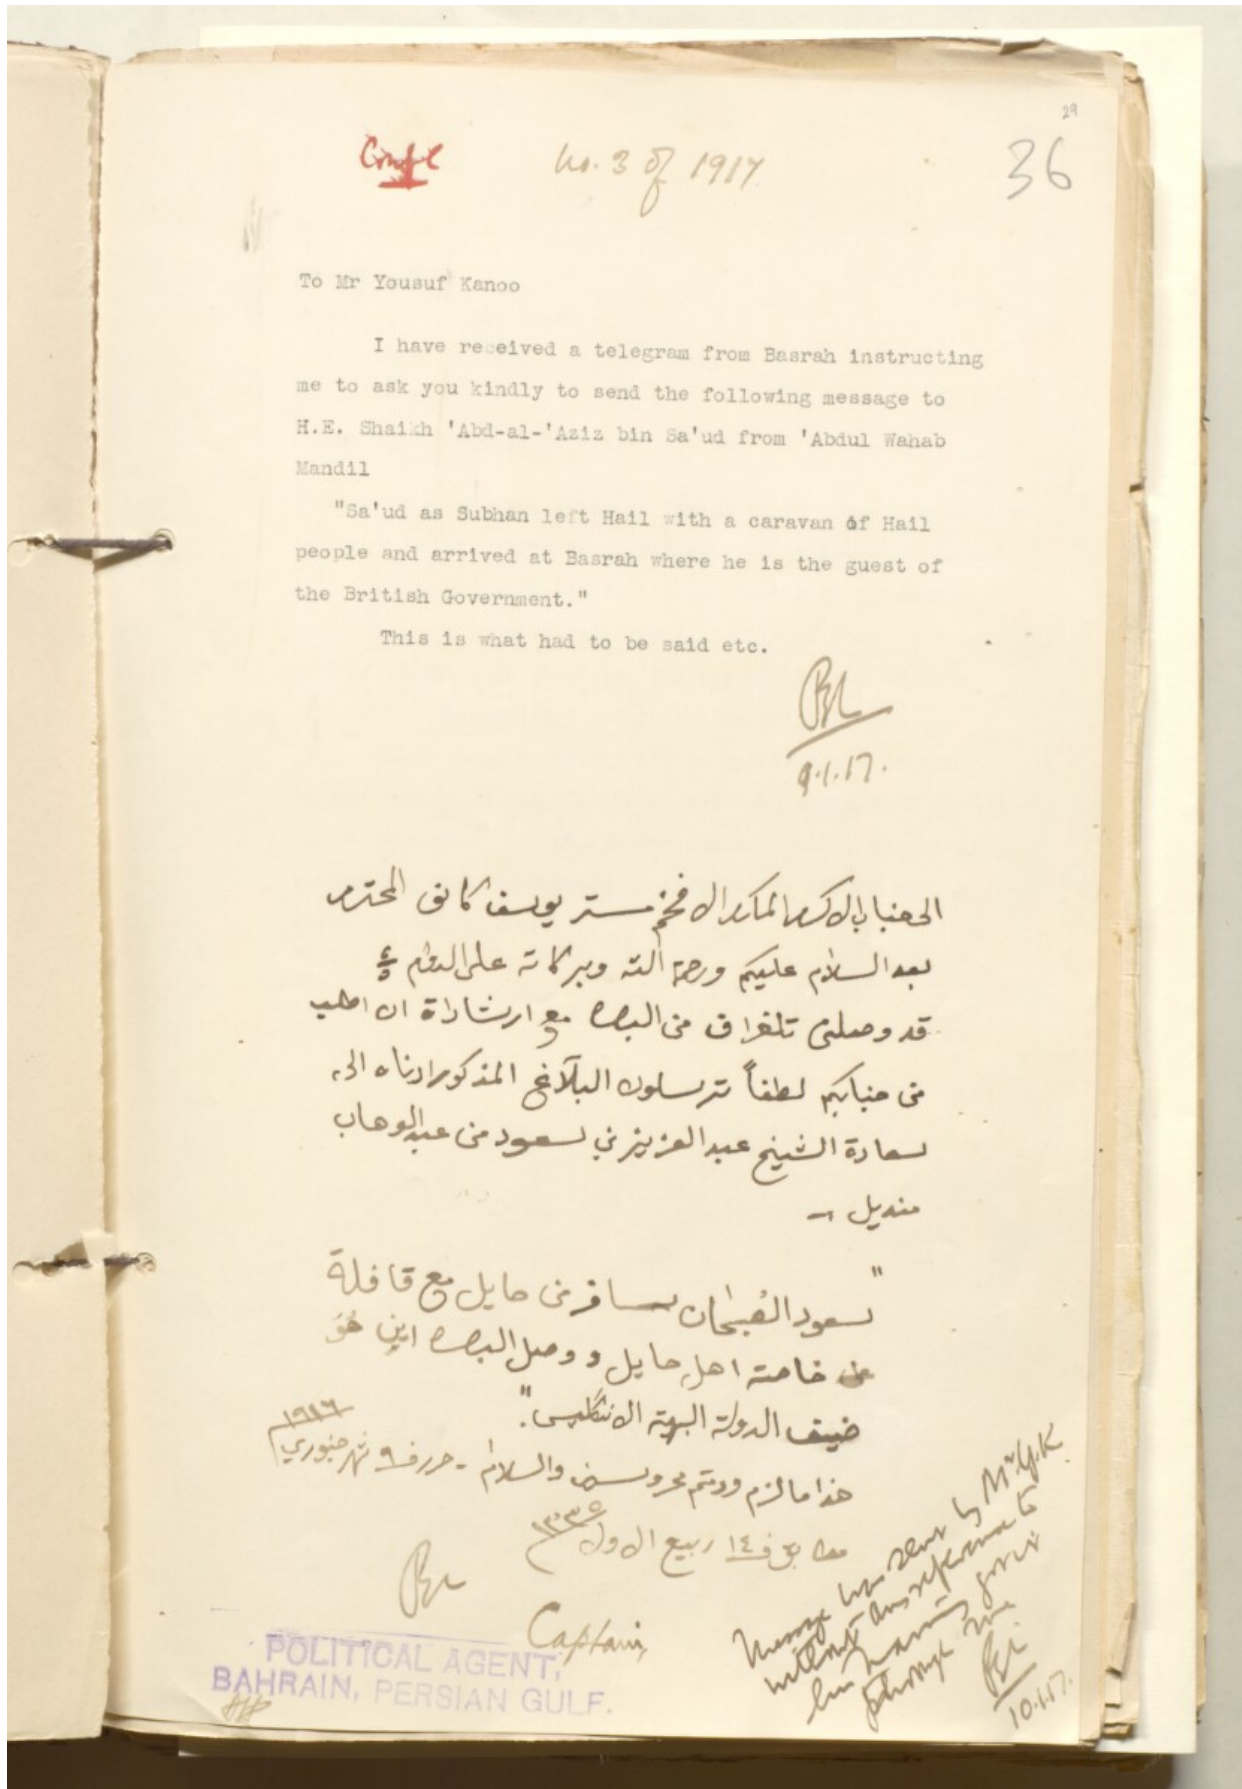 29
36
Confl
No. 3 of 1917.
To Mr Yousuf Kanoo
I have received a telegram from Basrah instructing
me to ask you kindly to send the following message to
H.E. Shaikh 'Abd-al-'Aziz bin Sa'ud from 'Abdul Wahab
Mandil
"Sa'ud as Subhan left Hail with a caravan of Hail
people and arrived at Basrah where he is the guest of
the British Government."
This is what had to be said etc.
9.1.17.
الى جناب الاكرم المكرم الافخم مستر يوسف كانو المحترم
بعد السلام عليكم ورحمة الله وبركاته على الدوام
قد وصلني تلغراف من البصره مع ارشاداة ان اطلب
من جنابكم لطفاً ترسلون البلاغ المذكور ادناه الى
سعادة الشيخ عبد العزيز بن سعود من عبد الوهاب
منديل -
"سعود الصُبحان سافر من حايل مع قافلة
خاصة اهل حايل و وصل البصره اين هُوَ
ضيف الدولة البهية الانگليس."
هذا ما لزم ودمتم محروسين والسلام - حرر في ٩ شهر جنوري ١٩١٦
مطابق في ١٤ ربيع الاول ١٣٣٥
Captain,
POLITICAL AGENT,
BAHRAIN, PERSIAN GULF.
Message was sent by Mr. Y.K.
without any reference to
his having gone
through me
10.1.17.